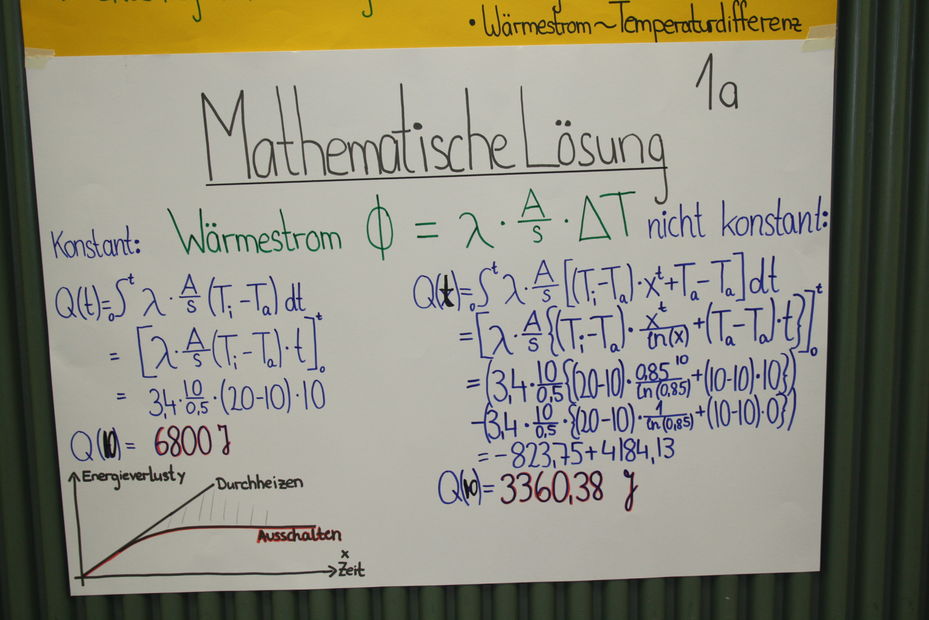 • Wärmestrom ~ Temperaturdifferenz
1a
Mathematische Lösung
Wärmestrom ϕ = λ · A/s · ΔT
Konstant:
Q(t) = ₀∫ᵗ λ · A/s (Tᵢ-Tₐ) dt
= [λ · A/s (Tᵢ-Tₐ) · t]₀ᵗ
= 3,4 · 10/0,5 · (20-10) · 10
Q(10) = 6800 J
nicht konstant:
Q(t) = ₀∫ᵗ λ · A/s [(Tᵢ-Tₐ) · xᵗ + Tₐ - Tₐ] dt
= [λ · A/s {(Tᵢ-Tₐ) · xᵗ/ln(x) + (Tₐ-Tₐ) · t}]₀ᵗ
= (3,4 · 10/0,5 {(20-10) · 0,85¹⁰/ln(0,85) + (10-10) · 10})
-(3,4 · 10/0,5 · {(20-10) · 1/ln(0,85) + (10-10) · 0})
= -823,75 + 4184,13
Q(10) = 3360,38 J
Energieverlust y
Durchheizen
Ausschalten
x
Zeit